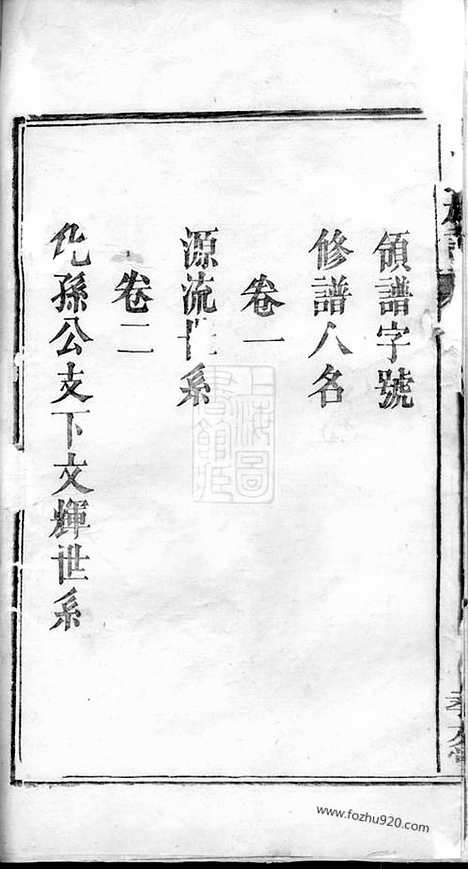 領譜字號
修譜人名
卷一
源流世系
卷二
化孫公支下文輝世系
上海圖書館藏
www.fozhu920.com